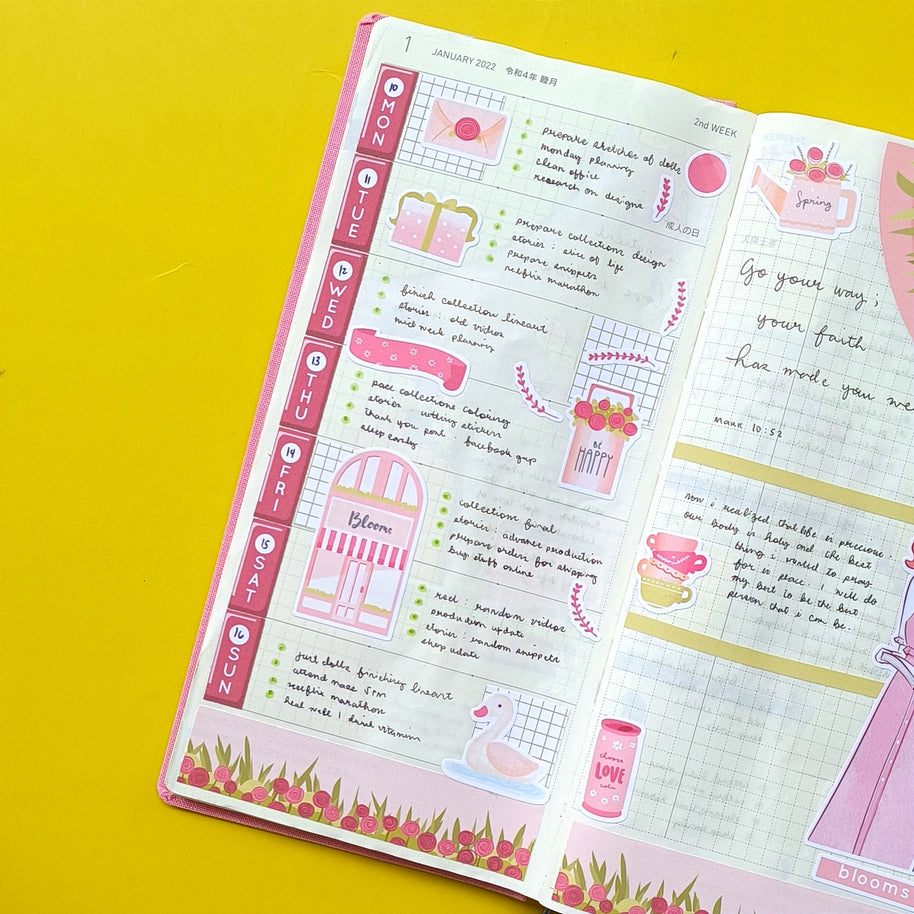 1 JANUARY 2022 令和4年 睦月
2nd WEEK
10 MON
prepare sketches of dolls
monday planning
clean office
research on designs
成人の日
11 TUE
prepare collections design
stories : slice of life
prepare snippets
netflix marathon
12 WED
finish collection lineart
stories : old videos
mid week planning
13 THU
pace collections coloring
stories - cutting stickers
thank you post - facebook
sleep early
BE
HAPPY
14 FRI
Blooms
collections final
stories : advance production
prepare orders for shipping
buy stuff online
15 SAT
reel : random videos
production update
stories : random snippets
shop udate
16 SUN
just dolls finishing lineart
attend mass 5pm
netflix marathon
heal well |
Spring
Go your way;
your faith
has made you we
MARK 10:52
now i realized that life is precious
our body is holy and the best
thing i would to pray
for is peace. i will do
my best to be the best
person that i can be.
choose
LOVE
blooms